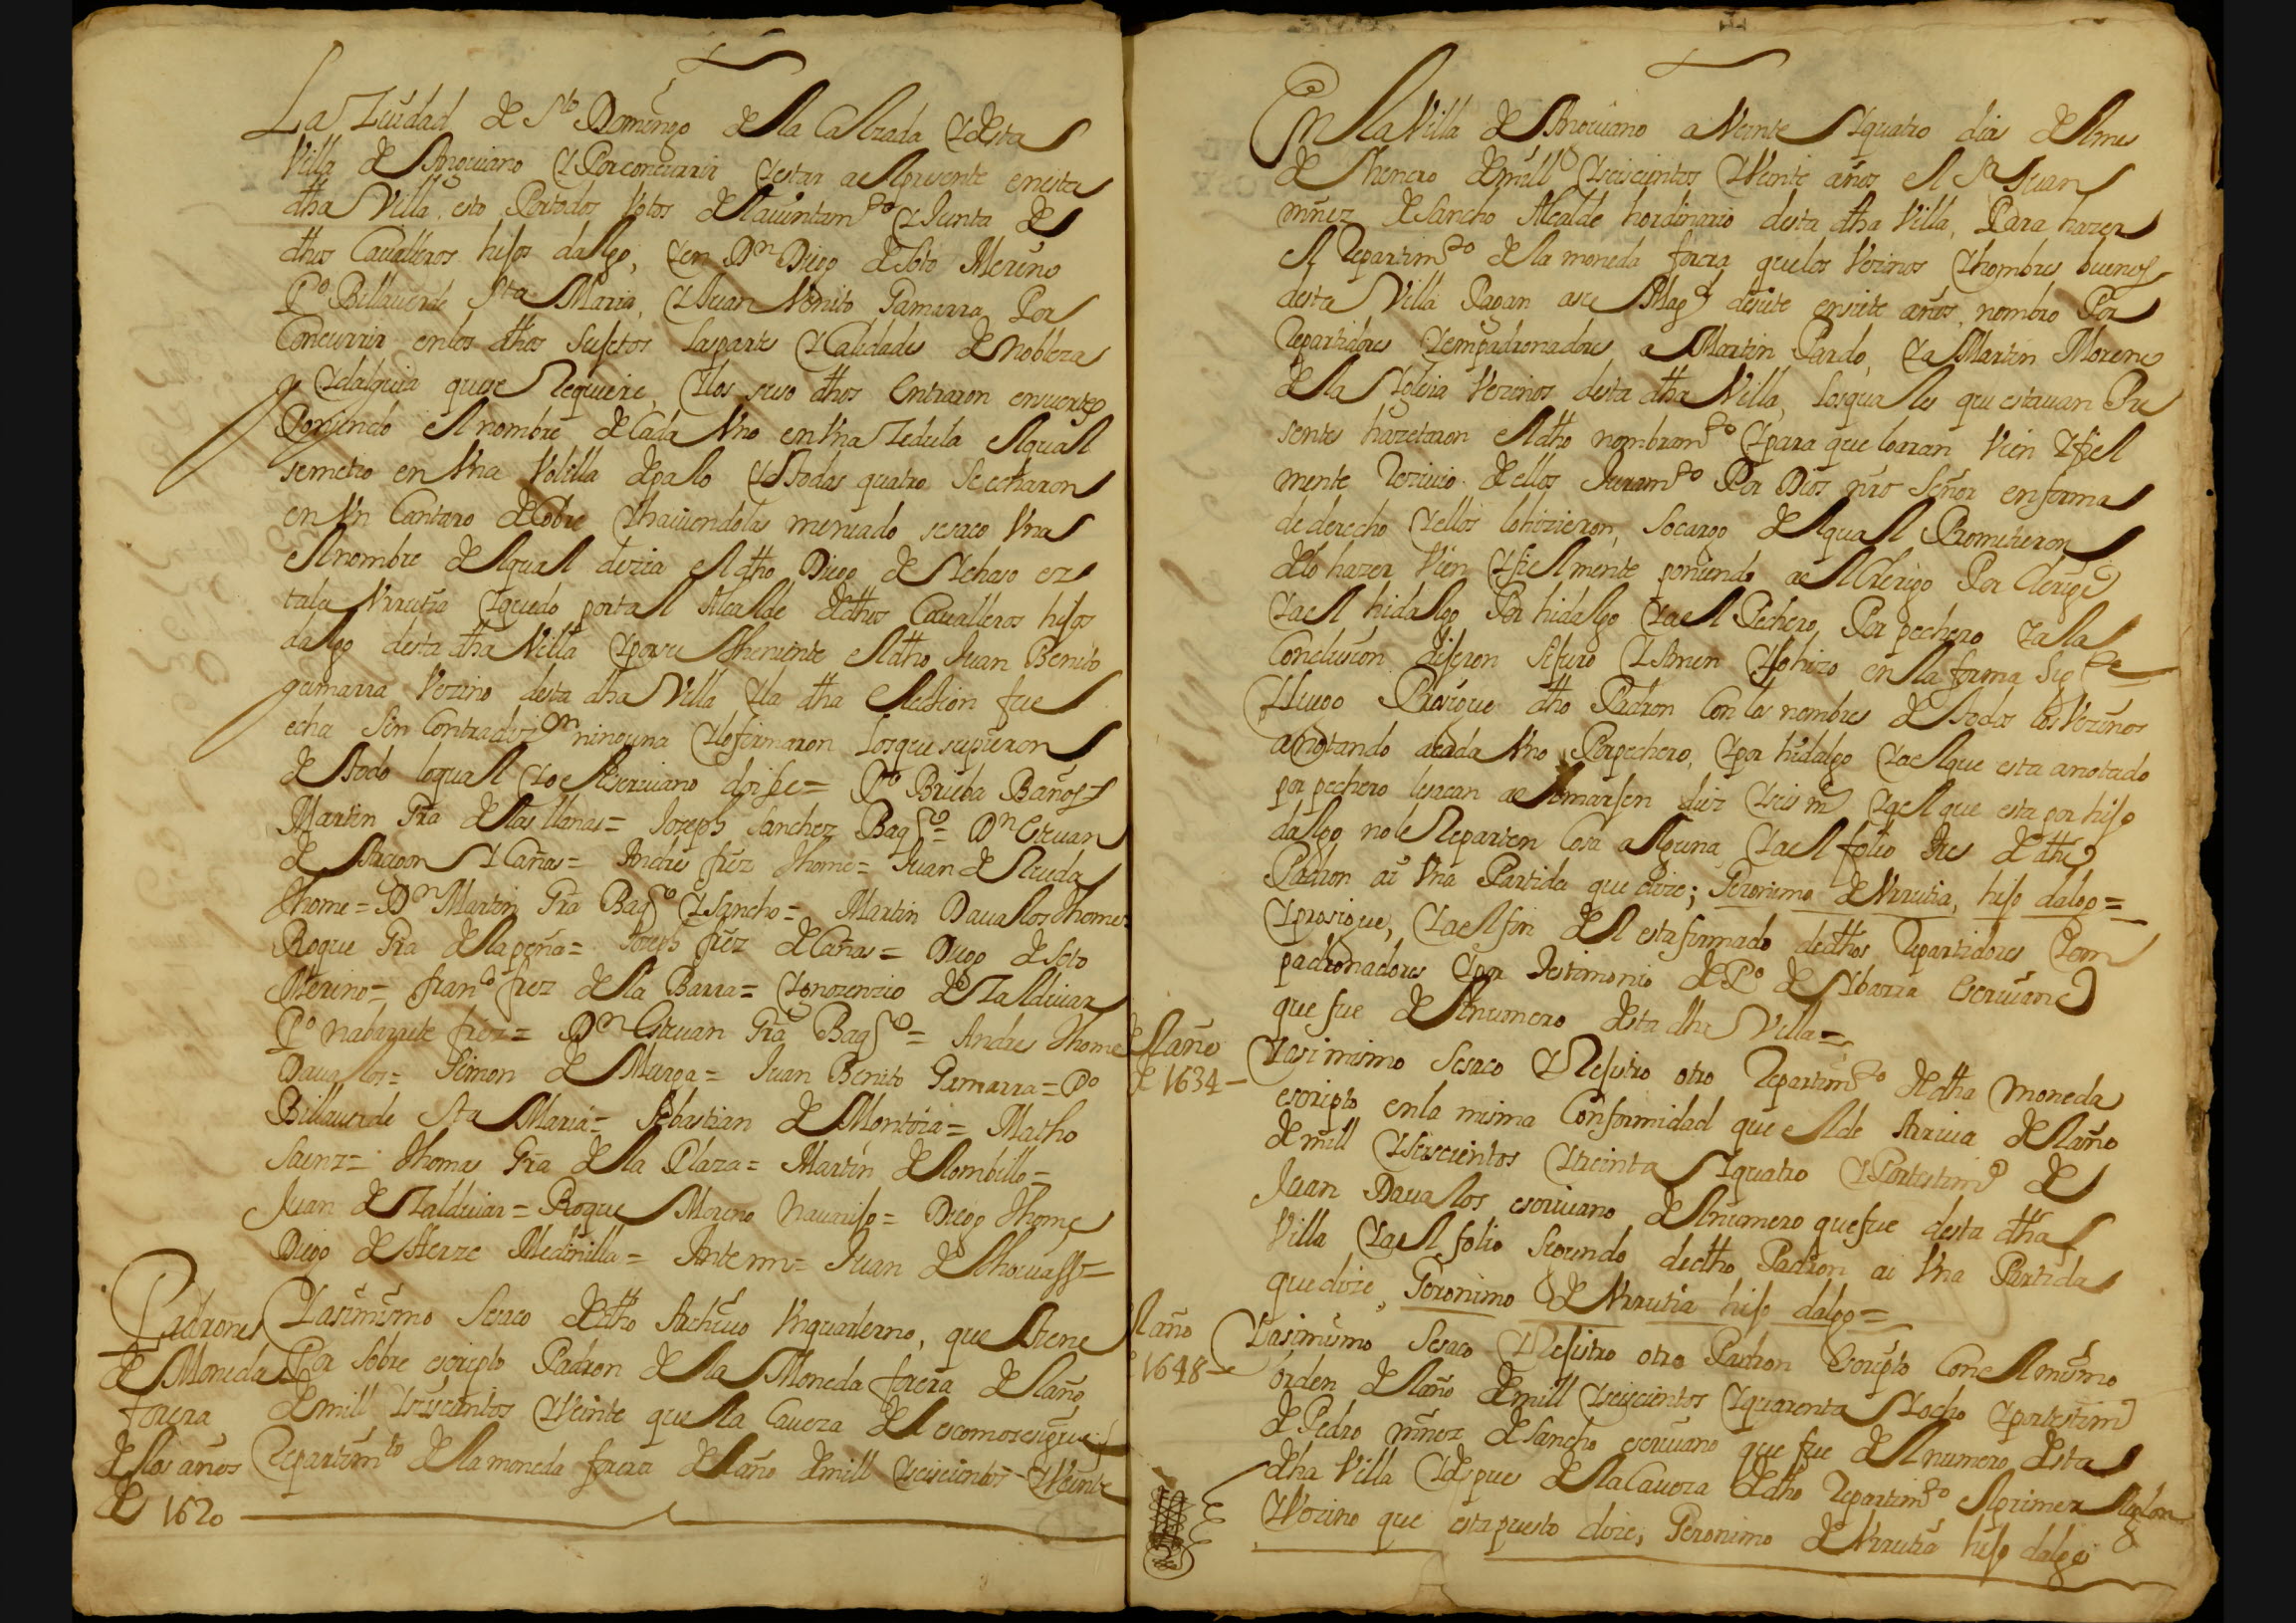 La Ziudad de Sto Domingo de la Calzada Y desta
Villa de Anguiano Y Por concurrir Y estar al presente en esta
dha Villa, esto Por todos Votos del aiuntamto Y Junta de
dhos Caualleros hijos dalgo, Y en Dn Diego de Soto Merino
Po Billauerde Sta Maria, Y Juan Venito Gamarra Por
Concurrir en los dhos Sujetos las partes Y Calidades de nobleza
Y dalguia que se Requiere, Y los suso dhos Entraron en suertes
Poniendo el nombre de Cada Vno en Vna Zedula el qual
se metio en Vna Volilla de palo Y todas quatro Se echaron
en Vn Cantaro de Cobre Y hauiendolas meneado se saco Vna
el nombre del qual dezia el dho Diego de
Vrrutia Y quedo por tal Alcalde de dhos Caualleros hijos
dalgo desta dha Villa Y por su theniente el dho Juan Benito
gamarra Vezino desta dha Villa Y la dha Election fue
echa Sin Contradizon ninguna Y lo firmaron los que supieron
de todo lo qual Yo el Escriuano doi fee = Po Brieba Baños =
Martin Gra de las llanas = Joseph Sanchez Bazo = Dn Esteuan
de Aragon Y Cañas = Andres frez thome = Juan de Rueda
thome = Dn Martin Gra Bazo Y Sancho = Martin Daualos thome =
Roque Gra de la peña = Joseph frez de Cañas = Diego de Soto
Merino = Franco frez de la Barra = Ynozenzio de Zaldiuar
Po nabarrete frez = Dn Esteuan Gra Bazo = Andres thome
Daualos = Simon de Murga = Juan Benito Gamarra = Po
Billauerde Sta Maria = Sebastian de Montoia = Matheo
Saenz = thomas Gra de la Plaza = Martin de lombillo =
Juan de Zaldiuar = Roque Moreno nauarijo = Diego thome
Diego de Medinilla = Ante mi = Juan de
Padrones
de Moneda
forera
de los años
de 1620
Y asimismo Se saco de dho Archiuo Vn quaderno, que tiene
Por Sobre escripto Padron de la Moneda forera del año
de mill Y seiscientos Y Veinte que la Caueza del es como se sigue
Repartimto de la moneda forera del año de mill Y seiscientos Y Veinte
En la Villa de Anguiano a Veinte Y quatro dias del mes
de henero de mill Y seiscientos Y Veinte años el Sr Juan
mñez de Sancho Alcalde hordinario desta dha Villa, Para hazer
el Repartimto de la moneda forera que los Vezinos Y hombres buenos
desta Villa Pagan a su Magd de siete en siete años, nombro Por
Repartidores Y empadronadores a Martin Pardo, Y a Martin Moreno
de la Yglesia Vezinos desta dha Villa, los quales que estauan Pre
sentes hazetaron el dho nombramto Y para que lo aran Vien Y fiel
mente Reciuio de ellos Juramto Por Dios nro Señor en forma
de derecho Y ellos lo hizieron, So cargo del qual Prometieron
de lo hazer Vien Y fielmente poniendo a el Clerigo Por Clerigo
Y a el hidalgo Por hidalgo Y a el Pechero, Por pechero Y a la
Conclusion dijeron Si juro Y Amen Y se hizo en la forma Sigte
Y luego Prosigue dho Padron Con los nombres de todos los Vezinos
anotando a cada Vno Por pechero, Y por hidalgo Y a el que esta anotado
por pechero le sacan al marjen diez Y seis ms Y a el que esta por hijo
dalgo no le Reparten Cosa alguna Y a el folio tres de dho
Padron ai Vna Partida que dize; Geronimo de Vrrutia, hijo dalgo =
Y prosigue, Y a el fin del esta firmado de dhos Repartidores Y em
padronadores Y por testimonio de Po de Ybarra Escriuano
que fue del numero desta dha Villa =
del año
de 1634
Y asimismo Se saco Y Rejistro otro Repartimto de dha Moneda
escripto en la misma Conformidad que el de Arriua del año
de mill Y seiscientos Y treinta Y quatro Y Por testimo de
Juan Daualos escriuano del numero que fue desta dha
Villa Y a el folio Segundo de dho Padron ai Vna Partida
que dize, Geronimo de Vrrutia hijo dalgo =
del año
de 1648
Y asimismo Se saco Y Rejistro otro Padron Escripto Con el mismo
orden del año de mill Y seiscientos Y quarenta Y ocho Y por testimo
de Pedro mñez de Sancho escriuano que fue del numero desta
dha Villa Y despues de la Caueza de dho Repartimto el primer Renglon
Y Vezino que esta puesto dize; Geronimo de Vrrutia hijo dalgo